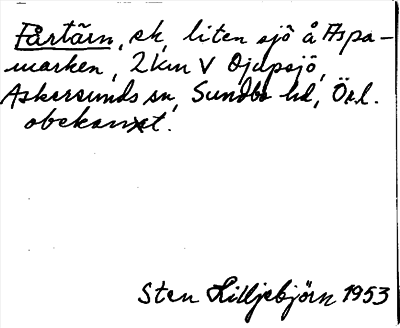 Fårtärn, ek, liten sjö å Aspa-
marken, 2 km V Djupsjö,
Askersunds sn, Sundbo hd, Örl.
obekant.
Sten Lilljebjörn 1953